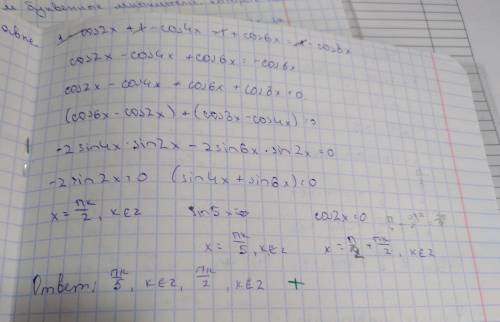 1 - cos2x + 1 - cos4x = 1 + cos6x = 1 - cos8x
cos2x - cos4x + cos6x = -cos8x
cos2x - cos4x + cos6x + cos8x = 0
(cos6x - cos2x) + (cos8x - cos4x) = 0
-2sin4x · sin2x - 2sin6x · sin2x = 0
-2sin2x = 0 (sin4x + sin6x) = 0
x = πk/2, k∈Z sin5x=0 cos2x=0
x = πk/5, k∈Z x = π/2 + πk/2, k∈Z
Ответ: πk/5, k∈Z, πk/2, k∈Z +